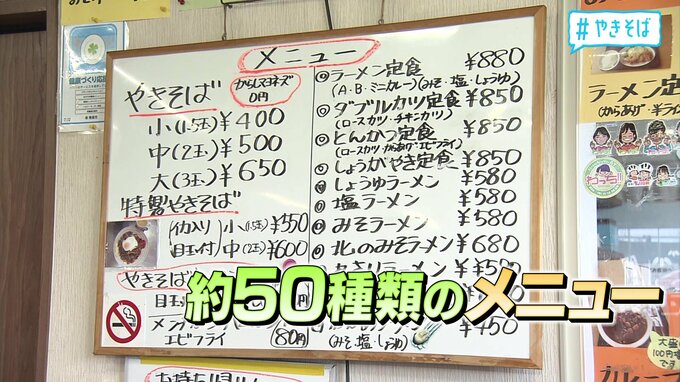 #やきそば
メニュー
やきそば
からしマヨネズ
0円
小(1.5玉)¥400
中(2玉)¥500
大(3玉)¥650
特製やきそば
イカ入り
目玉付
小(1.5玉)¥550
中(2玉)¥600
やきそば
目玉
メンチカツ
エビフライ
80円
ラーメン定食 ¥880
(A.B.ミニカレー)(みそ・塩・しょうゆ)
ダブルカツ定食 ¥850
(ロースカツ・チキンカツ)
とんかつ定食 ¥850
(ロースカツ・からあげ・エビフライ)
しょうがやき定食 ¥850
しょうゆラーメン ¥580
塩ラーメン ¥580
みそラーメン ¥580
北のみそラーメン ¥680
¥450
(みそ・塩・しょうゆ)
約50種類のメニュー
健康づくり応援
ラーメン定食
(からあげ・半ライ
大盛
100円増
です
カレー
お持ち帰り